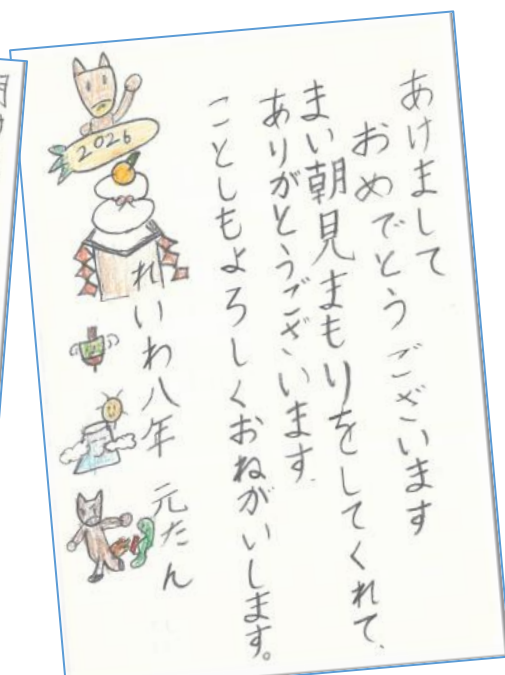 あけまして
おめでとうございます
まい朝見まもりをしてくれて、
ありがとうございます。
ことしもよろしくおねがいします。
れいわ八年 元たん
2026